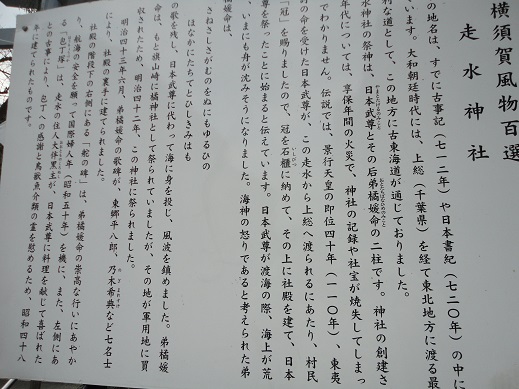 横須賀風物百選
走水神社
の地名は、すでに古事記（七一二年）や日本書紀（七二〇年）の中に
います。大和朝廷時代には、上総（千葉県）を経て東北地方に渡る最
な道として、この地方に古東海道が通じておりました。
水神社の祭神は、日本武尊とその后弟橘媛命の二柱です。神社の創建さ
年代については、享保年間の火災で、神社の記録や社宝が焼失してしまっ
でわかりません。伝説では、景行天皇の即位四十年（一一〇年）、東夷
の命を受けた日本武尊が、この走水から上総へ渡られるにあたり、村民
「冠」を賜りましたので、冠を石櫃に納めて、その上に社殿を建て、日本
尊を祭ったことに始まると伝えています。日本武尊が渡海の際、海上が荒
、いまにも舟が沈みそうになりました。海神の怒りであると考えられた弟
媛命は、
さねさしさがむのをぬにもゆるひの
ほなかにたちてとひしきみはも
の歌を残し、日本武尊に代わって海に身を投じ、風波を鎮めました。弟橘媛
命は、もと旗山崎に橘神社として祭られていましたが、その地が軍用地に買
収されたため、明治四十二年、この神社に祭られました。
明治四十三年六月、弟橘媛命の歌碑が、東郷平八郎、乃木希典など七名士
により、社殿の裏手に建てられました。
社殿の階段下の右側にある「舵の碑」は、弟橘媛命の崇高な行いにあやか
り、航海の安全を願って国際婦人年（昭和五十年）を機に、また、左側にあ
る「包丁塚」は、走水の住人大伴黒主が、日本武尊に料理を献じて喜ばれた
との古事により、包丁への感謝と鳥獣魚介類の霊を慰めるため、昭和四十八
年に建てられたものです。